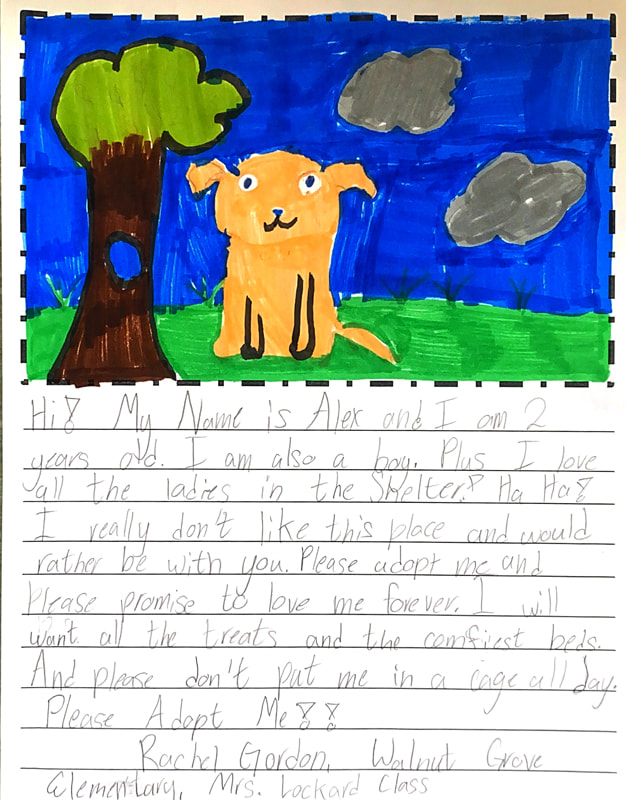 Hi! My Name is Alex and I am 2
years old. I am also a boy. Plus I love
all the ladies in the Shelter! Ha Ha!
I really don't like this place and would
rather be with you. Please adopt me and
Please promise to love me forever. I will
want all the treats and the comfiest beds.
And please don't put me in a cage all day.
Please Adopt Me!!
Rachel Gordon, Walnut Grove
Elementary, Mrs. Lockard Class